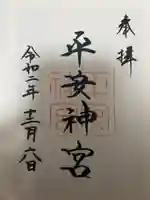 奉拝
平安神宮
令和二年十二月六日